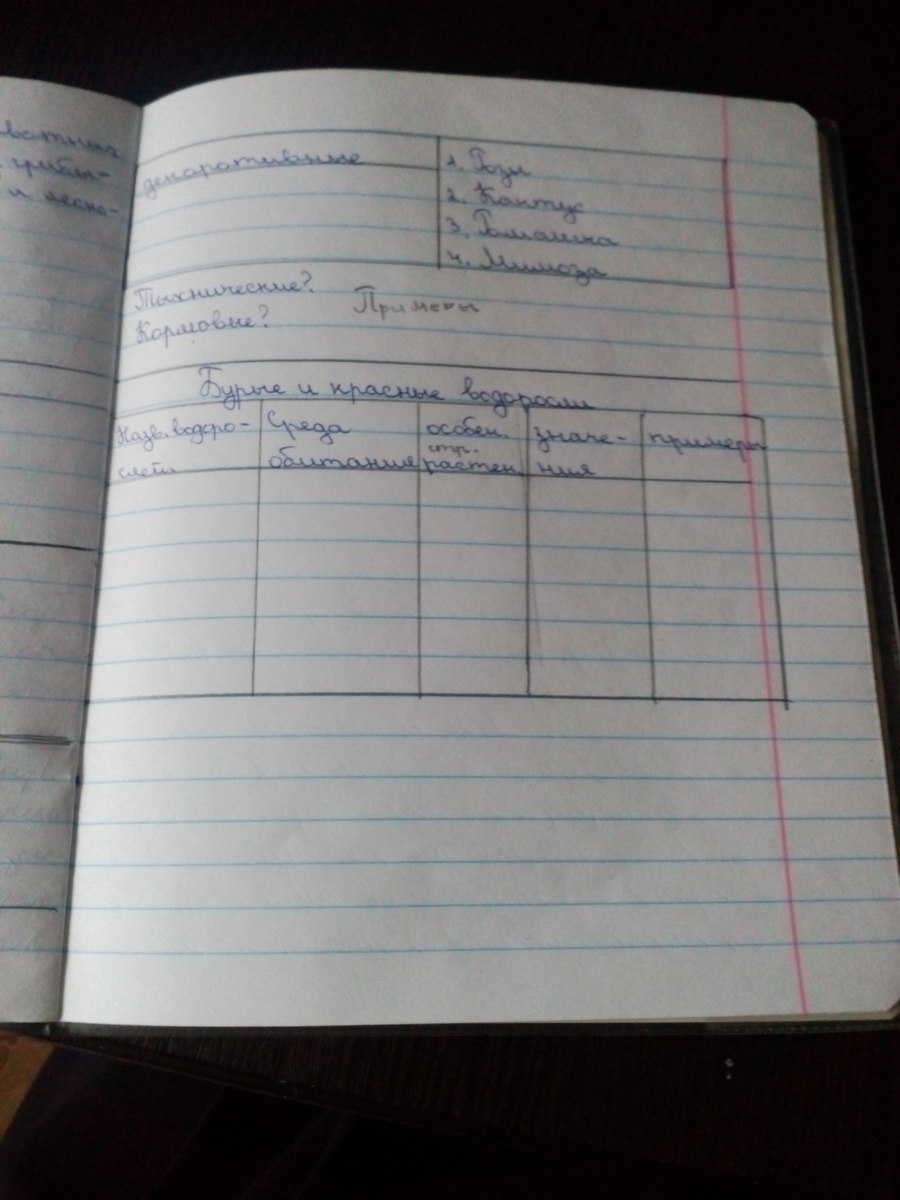 вотных
грибы-
и лесно-
декаротивные
1. Розы
2. Кактус
3. Ромашка
4. Мимоза
Тыхнические? Примеры
Кормовые?
Бурые и красные водоросли
Назв. водоро-
слей
Среда
обитания
особен.
стр.
растен.
значе-
ния
примеры